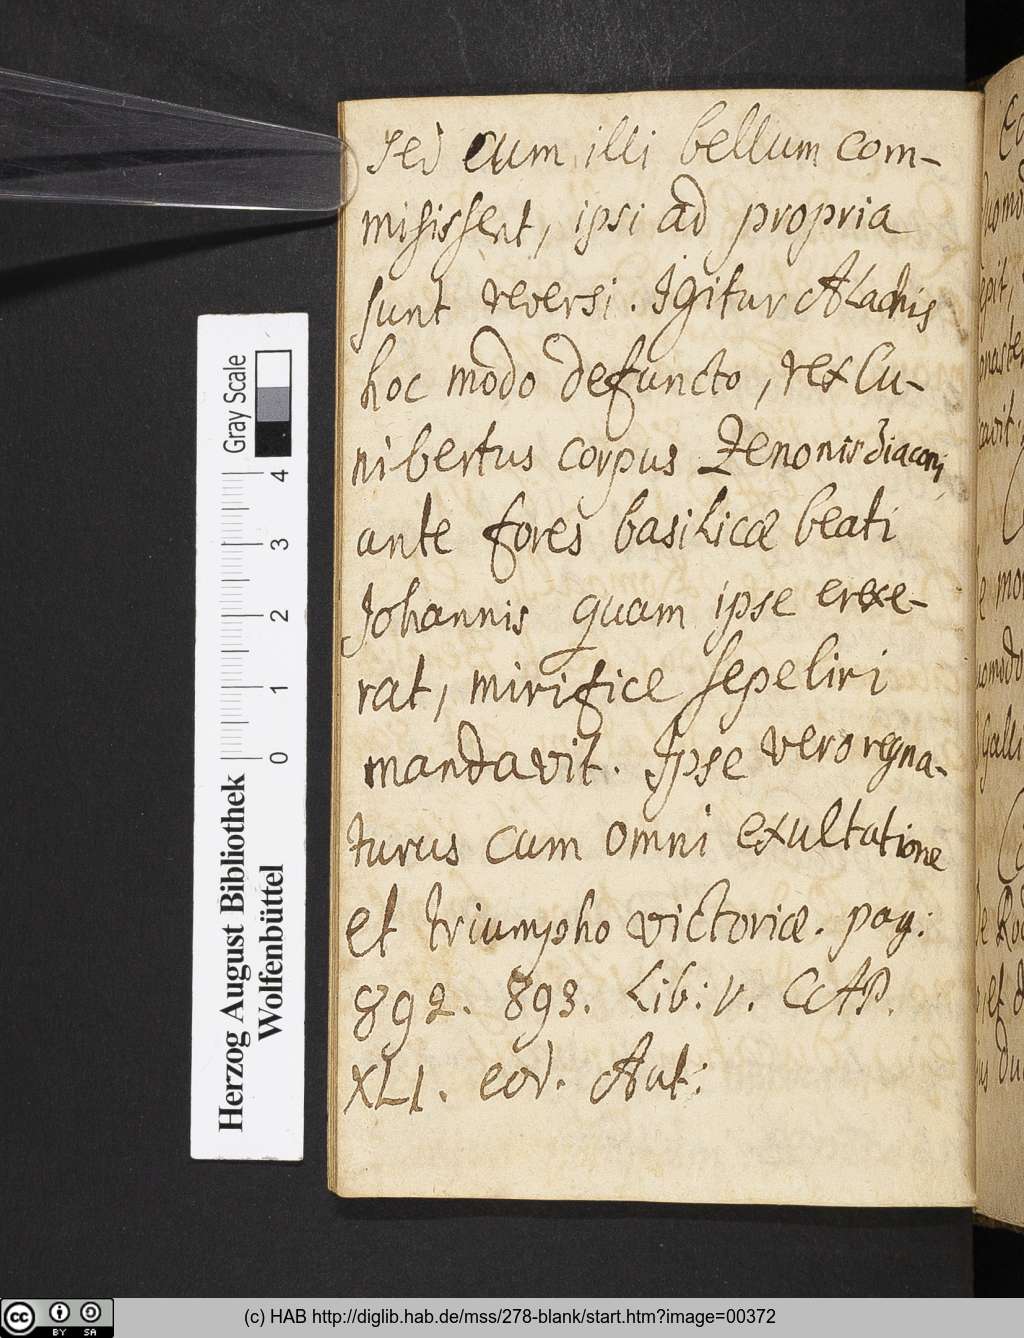 sed cum illi bellum com-
misissent, ipsi ad propria
sunt reversi. Igitur Alachis
hoc modo defuncto, rex Cu-
nibertus corpus Zenonis diaconi
ante fores basilicæ beati
Johannis quam ipse erexe-
rat, mirifice sepeliri
mandavit. Ipse vero regna-
turus cum omni exultatione
et triumpho victoriæ. pag:
892. 893. Lib: V. CAP.
XLI. eod. Aut:
Gray Scale
0 1 2 3 4
Herzog August Bibliothek
Wolfenbüttel
cc BY SA
(c) HAB http://diglib.hab.de/mss/278-blank/start.htm?image=00372